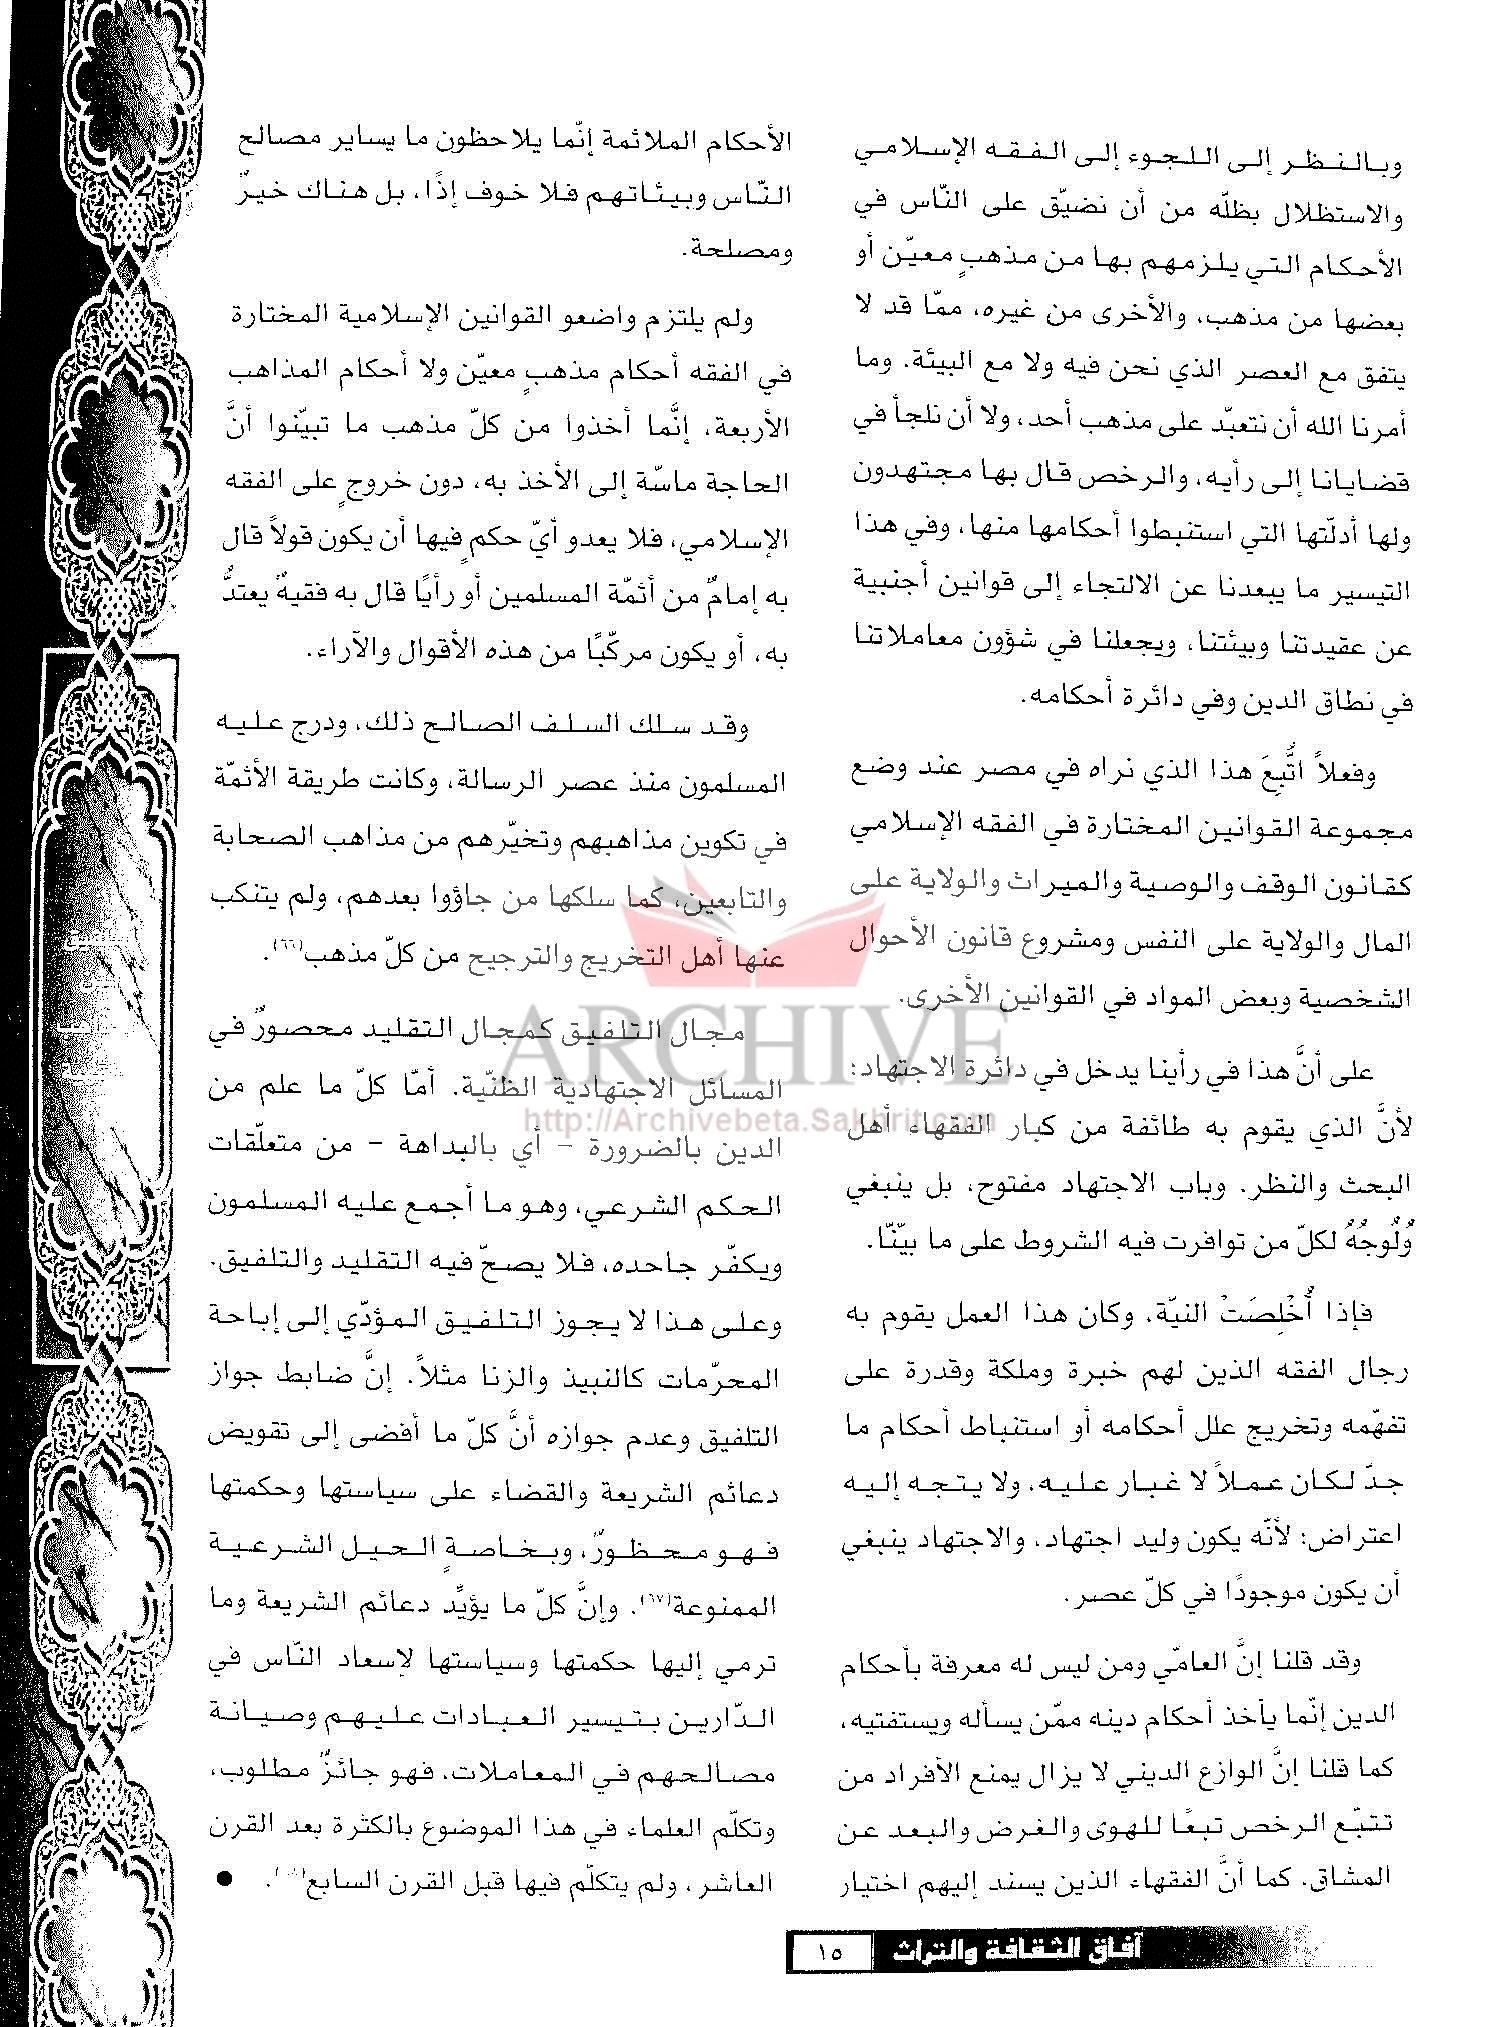 وبالنظر إلى اللجوء إلى الفقه الإسلامي
والاستظلال بظلّه من أن نضيّق على النّاس في
الأحكام التي يلزمهم بها من مذهبٍ معيّن أو
بعضها من مذهب، والأخرى من غيره، ممّا قد لا
يتفق مع العصر الذي نحن فيه ولا مع البيئة. وما
أمرنا الله أن نتعبّد على مذهب أحد، ولا أن نلجأ في
قضايانا إلى رأيه، والرخص قال بها مجتهدون
ولها أدلّتها التي استنبطوا أحكامها منها، وفي هذا
التيسير ما يبعدنا عن الالتجاء إلى قوانين أجنبية
عن عقيدتنا وبيئتنا، ويجعلنا في شؤون معاملاتنا
في نطاق الدين وفي دائرة أحكامه.
وفعلاً اتُّبِعَ هذا الذي نراه في مصر عند وضع
مجموعة القوانين المختارة في الفقه الإسلامي
كقانون الوقف والوصية والميراث والولاية على
المال والولاية على النفس ومشروع قانون الأحوال
الشخصية وبعض المواد في القوانين الأخرى.
على أنَّ هذا في رأينا يدخل في دائرة الاجتهاد؛
لأنَّ الذي يقوم به طائفة من كبار الفقهاء أهل
البحث والنظر. وباب الاجتهاد مفتوح، بل ينبغي
وُلُوجُهُ لكلّ من توافرت فيه الشروط على ما بيّنّا.
فإذا أُخْلِصَتْ النيّة، وكان هذا العمل يقوم به
رجال الفقه الذين لهم خبرة وملكة وقدرة على
تفهّمه وتخريج علل أحكامه أو استنباط أحكام ما
جدّ لكان عملاً لا غبار عليه، ولا يتجه إليه
اعتراض؛ لأنّه يكون وليد اجتهاد، والاجتهاد ينبغي
أن يكون موجودًا في كلّ عصر.
وقد قلنا إنَّ العامّي ومن ليس له معرفة بأحكام
الدين إنّما يأخذ أحكام دينه ممّن يسأله ويستفتيه،
كما قلنا إنَّ الوازع الديني لا يزال يمنع الأفراد من
تتبّع الرخص تبعًا للهوى والغرض والبعد عن
المشاق. كما أنَّ الفقهاء الذين يسند إليهم اختيار
الأحكام الملائمة إنّما يلاحظون ما يساير مصالح
النّاس وبيئاتهم فلا خوف إذًا، بل هناك خيرٌ
ومصلحة.
ولم يلتزم واضعو القوانين الإسلامية المختارة
في الفقه أحكام مذهبٍ معيّن ولا أحكام المذاهب
الأربعة، إنَّما أخذوا من كلّ مذهب ما تبيّنوا أنَّ
الحاجة ماسّة إلى الأخذ به، دون خروجٍ على الفقه
الإسلامي، فلا يعدو أيّ حكمٍ فيها أن يكون قولاً قال
به إمامٌ من أئمّة المسلمين أو رأيًا قال به فقيهٌ يعتدُّ
به، أو يكون مركّبًا من هذه الأقوال والآراء.
وقد سلك السلف الصالح ذلك، ودرج عليه
المسلمون منذ عصر الرسالة، وكانت طريقة الأئمّة
في تكوين مذاهبهم وتخيّرهم من مذاهب الصحابة
والتابعين، كما سلكها من جاؤوا بعدهم، ولم يتنكب
عنها أهل التخريج والترجيح من كلّ مذهب(٦٦).
مجال التلفيق كمجال التقليد محصورٌ في
المسائل الاجتهادية الظنّية. أمّا كلّ ما علم من
الدين بالضرورة – أي بالبداهة – من متعلّقات
الحكم الشرعي، وهو ما أجمع عليه المسلمون
ويكفّر جاحده، فلا يصحّ فيه التقليد والتلفيق.
وعلى هذا لا يجوز التلفيق المؤدّي إلى إباحة
المحرّمات كالنبيذ والزنا مثلاً. إنَّ ضابط جواز
التلفيق وعدم جوازه أنَّ كلّ ما أفضى إلى تقويض
دعائم الشريعة والقضاء على سياستها وحكمتها
فهو محظورٌ، وبخاصةٍ الحيل الشرعية
الممنوعة(٦٧). وإنَّ كلّ ما يؤيِّد دعائم الشريعة وما
ترمي إليها حكمتها وسياستها لإسعاد النّاس في
الدّارين بتيسير العبادات عليهم وصيانة
مصالحهم في المعاملات، فهو جائزٌ مطلوب،
وتكلّم العلماء في هذا الموضوع بالكثرة بعد القرن
العاشر، ولم يتكلّم فيها قبل القرن السابع. ●
ARCHIVE
http://Archivebeta.Sakhrit.com
آفاق الثقافة والتراث ١٥